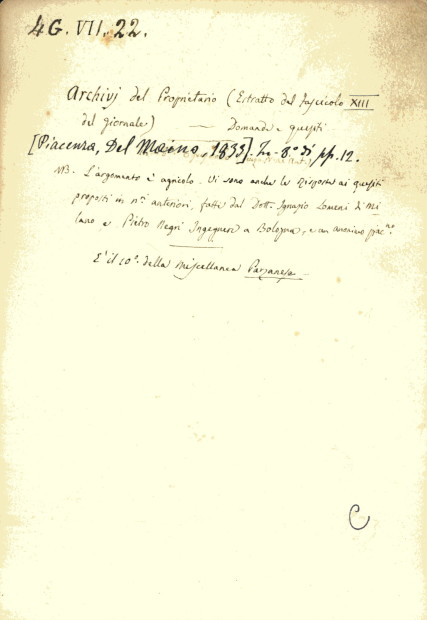 4G. VII. 22.
Archivj del Proprietario (Estratto dal fascicolo XIII
del giornale) — Domande e quesiti
[Piacenza, Del Maino, 1833]. In-8° di pp. 12.
NB. L'argomento è agricolo. Vi sono anche le Risposte ai quesiti
proposti in n.ri anteriori, fatte dal Dott. Ignazio Lomeni di Mi-
lano e Pietro Negri Ingegnere a Bologna, e un anonimo piac.no
E' il 10°. della Miscellanea Parzanese
C